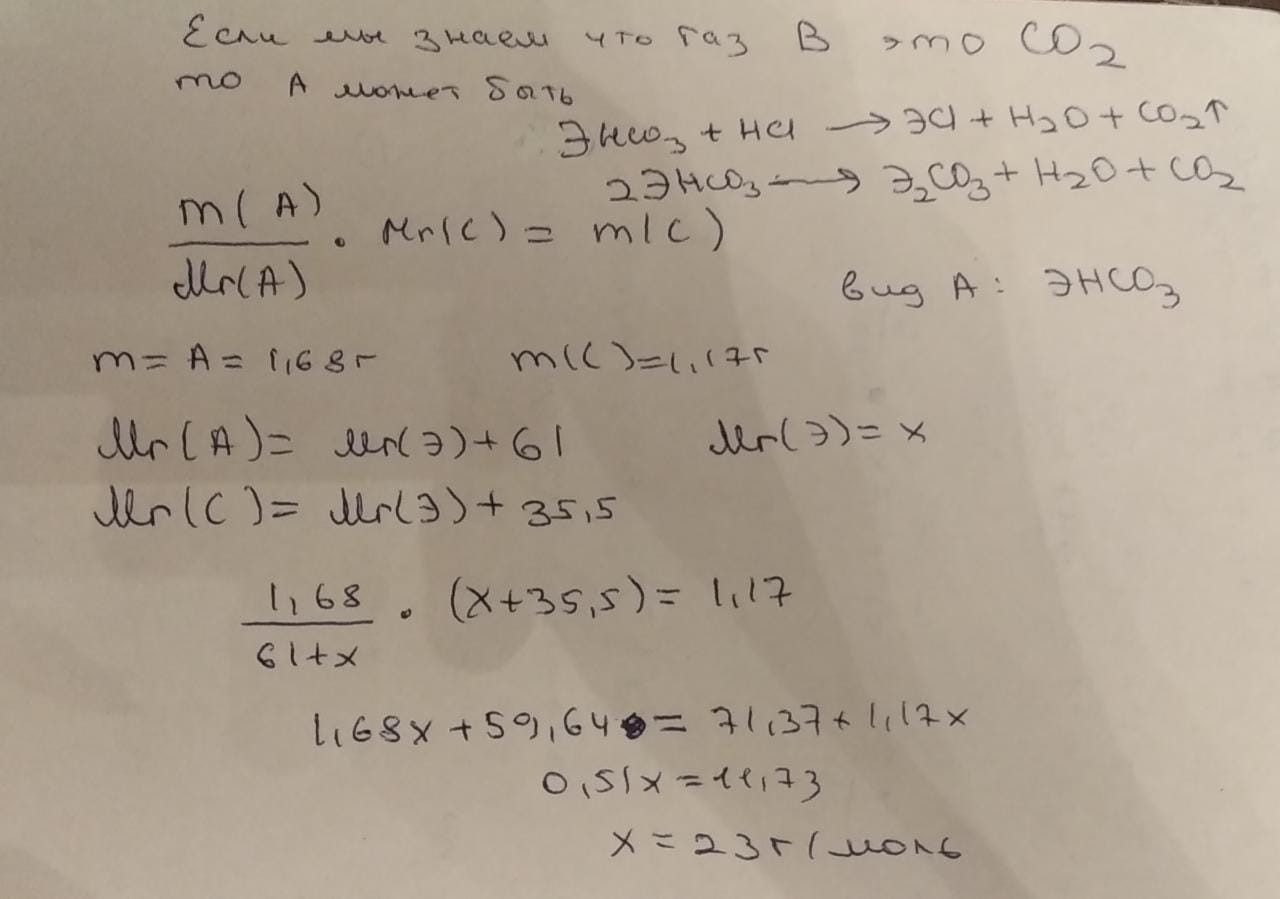 Если мы знаем что газ В это CO2
то А может быть
ЭHCO3 + HCl → ЭCl + H2O + CO2↑
2ЭHCO3 → Э2CO3 + H2O + CO2
m(A)/Mr(A) · Mr(C) = m(C)
вид А: ЭHCO3
m = A = 1,68г m(C)=1,17г
Mr(A)= Mr(Э)+61 Mr(Э)= x
Mr(C)= Mr(Э)+ 35,5
1,68/61+x · (x+35,5)= 1,17
1,68x + 59,64 = 71,37 + 1,17x
0,51x = 11,73
x = 23 г/моль